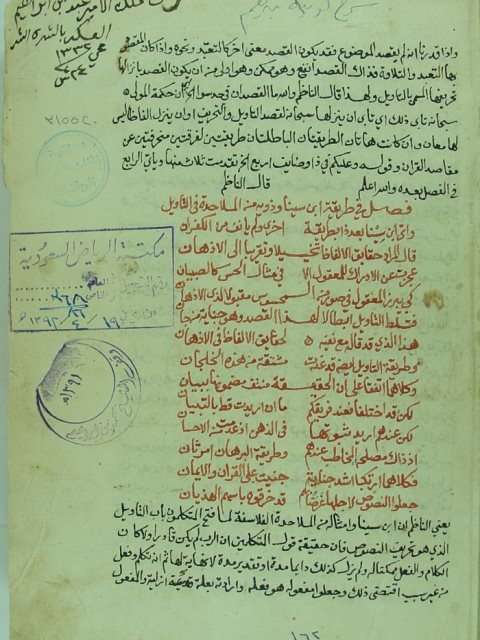 واذا قدر انه لم يقصد الموضوع فقد يكون القصد معنى اخر كالتعبد ونحوه واذا كان
بها التعبد والتلاوة فذلك القصد انفع وهو ممكن وهو اولى من ان يكون القصد بانزالها
تحريفها المسمى بالتاويل ولهذا قال الناظم والله ما القصدان في حد سوا حكمة المولى
سبحانه تابى ذلك اي تابى ان ينزلها سبحانه لقصد التاويل والتحريف وان ينزل الفاظا ليس
لها معان وان كانت هاتان الطريقتان الباطلتان طريقتين لفرقتين منحرفتين عن
مقاصد القران وقوله وعليكم في ذا وظايف اربع الخ تقدمت ثلاث منها وياتي الرابع
في الفصل بعده والله اعلم قال الناظم
فصل في طريقة ابن سينا وذويه من الملاحدة في التاويل
واتى ابن سينا بعد ذا بطريقة اخرى ولم يانف من الكفران
قال المراد حقايق الالفاظ تخييلا وتقريبا الى الاذهان
عجزت عن الادراك للمعقول الا في مثال الحس كالصبيان
كي يبرز المعقول في صورة من المحسوس مقبولا لدى الاذهان
فتسلط التاويل ابطال لهذا القصد وهو جناية من جان
هذا الذي قد قاله مع نفيه لحقايق الالفاظ في الاذهان
وطريقة التاويل ايضا قد غدت مشتقة من هذه الخلجان
وكلاهما اتفقا على ان الحقيقة منتف مضمونها ببيان
لكن قد اختلفا فعند فريقكم ما ان اريدت قط بالتبيان
لكن عندهم اريد ثبوتها في الذهن اذ عدمت من الاحسان
اذ ذاك مصلحة المخاطب عندهم وطريقة البرهان امر ثان
فكلاهما ارتكبا اشد جناية جنيت على القران والايمان
جعلوا النصوص لاجلها غرضا لهم قد خرقوه باسهم الهذيان
يعني الناظم ان ابن سينا وامثاله من الملاحدة الفلاسفة لما فتح المتكلمون باب التاويل
الذي هو تحريف النصوص فان حقيقة قول المتكلمين ان الرب لم يكن قادرا ولا كان
الكلام والفعل ممكنا له ولم يزل كذلك دايما مدة او تقدير مدة لا نهاية لها ثم انه تكلم وفعل
من غير سبب اقتضى ذلك وجعلوا مفعوله هو فعله وارادته قديمة ازلية والمفعول
مكتبة الرياض السعودية
١٣٩١ه
١٦٢